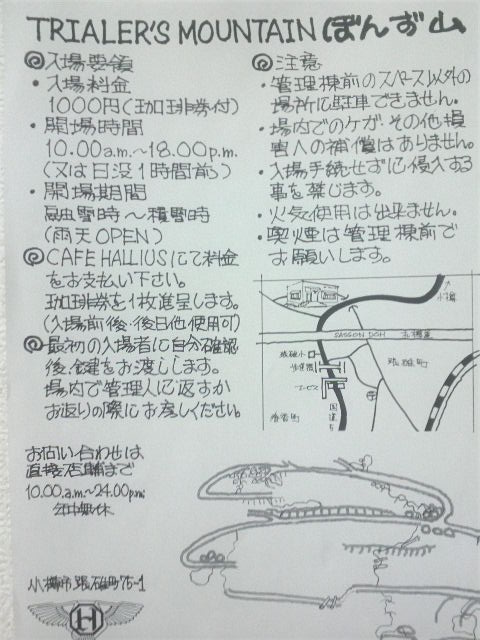 TRIALER'S MOUNTAIN ぼんず山
入場要領
・入場料金
1000円(珈琲券付)
・開場時間
10.00a.m.~18.00p.m.
(又は日没1時間前)
・開場期間
融雪時~積雪時
(雨天OPEN)
CAFE HALLIUSにて料金
をお支払い下さい。
珈琲券を1枚進呈します。
(入場前後・後日他使用可)
最初の入場者に自分確認
後、鍵をお渡しします。
場内で管理人に返すか
お返りの際にお戻しください。
注意
・管理棟前のスペース以外の
場所に駐車できません。
・場内でのケガ、その他損
害への補償はありません。
・入場手続せずに侵入する
事を禁じます。
・火気使用は出来ません。
・喫煙は管理棟前で
お願いします。
小樽
SASSON DOH 札樽道
張碓町
国道5
お問い合わせは
直接店舗まで
10.00.a.m.~24.00p.m.
年中無休
小樽市張碓町75-1
H